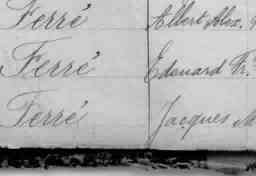 Ferré Albert Alex.
Ferré Edouard Fr.
Ferré Jacques M